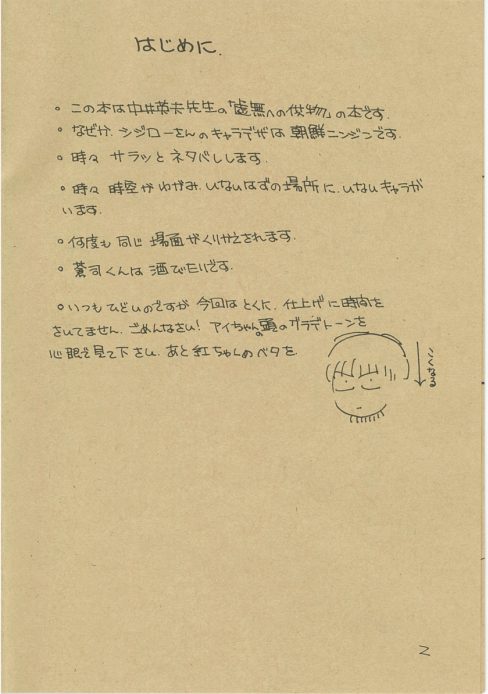 はじめに.
。この本は中井英夫先生の「虚無への供物」の本です.
。なぜか、シジローさんのキャラデザは 朝鮮ニンジンです.
。時々 サラッと ネタバレします.
。時々 時空がゆがみ、いないはずの場所に、いないキャラが
います.
。何度も 同じ 場面がくりかえされます.
。蒼司くんは 酒びたりです.
。いつもひどいのですが 今回はとくに、仕上げに時間を
さいてません、ごめんなさい! アイちゃんの頭のグラデトーンを
心眼で見て下さい、あと紅ちゃんのベタを.
こくなる
2